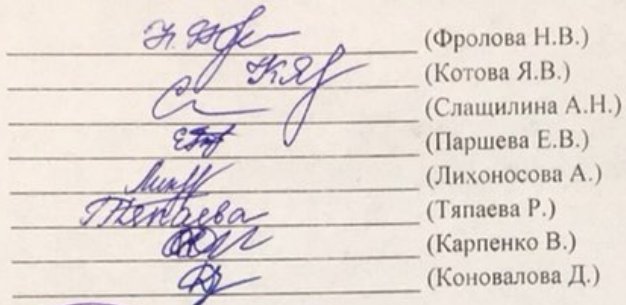 (Фролова Н.В.)
(Котова Я.В.)
(Слащилина А.Н.)
(Паршева Е.В.)
(Лихоносова А.)
Тяпаева (Тяпаева Р.)
(Карпенко В.)
(Коновалова Д.)